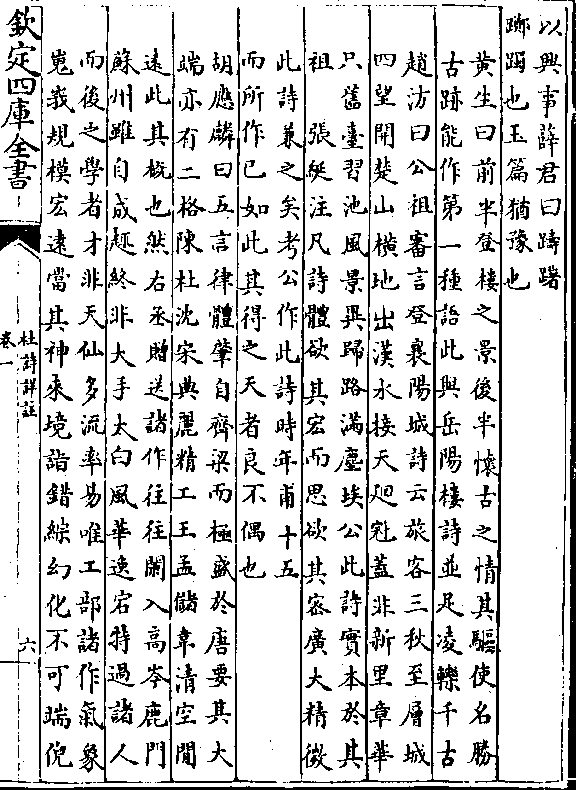 以興事薛君曰躊躇
躑躅也玉篇猶豫也
黄生曰前半登樓之景後半懷古之情其驅使名勝
古跡能作第一種語此與岳陽樓詩並足凌轢千古
趙汸曰公祖審言登襄陽城詩云旅客三秋至層城
四望開楚山横地出漢水接天廻冠蓋非新里章華
只舊臺習池風景異歸路滿塵埃公此詩實本於其
祖　張綖注凡詩體欲其宏而思欲其宻廣大精微
此詩兼之矣考公作此詩時年甫十五
而所作已如此其得之天者良不偶也
胡應麟曰五言律體肇自齊梁而極盛於唐要其大
端亦有二格陳杜沈宋典麗精工王孟儲韋清空閒
逺此其概也然右丞贈送諸作往往闌入高岑鹿門
蘇州雖自成趣終非大手太白風華逸宕特過諸人
而後之學者才非天仙多流率易唯工部諸作氣象
嵬峩規模宏逺當其神來境詣錯綜幻化不可端倪
欽定四庫全書
杜詩詳註
卷一
六